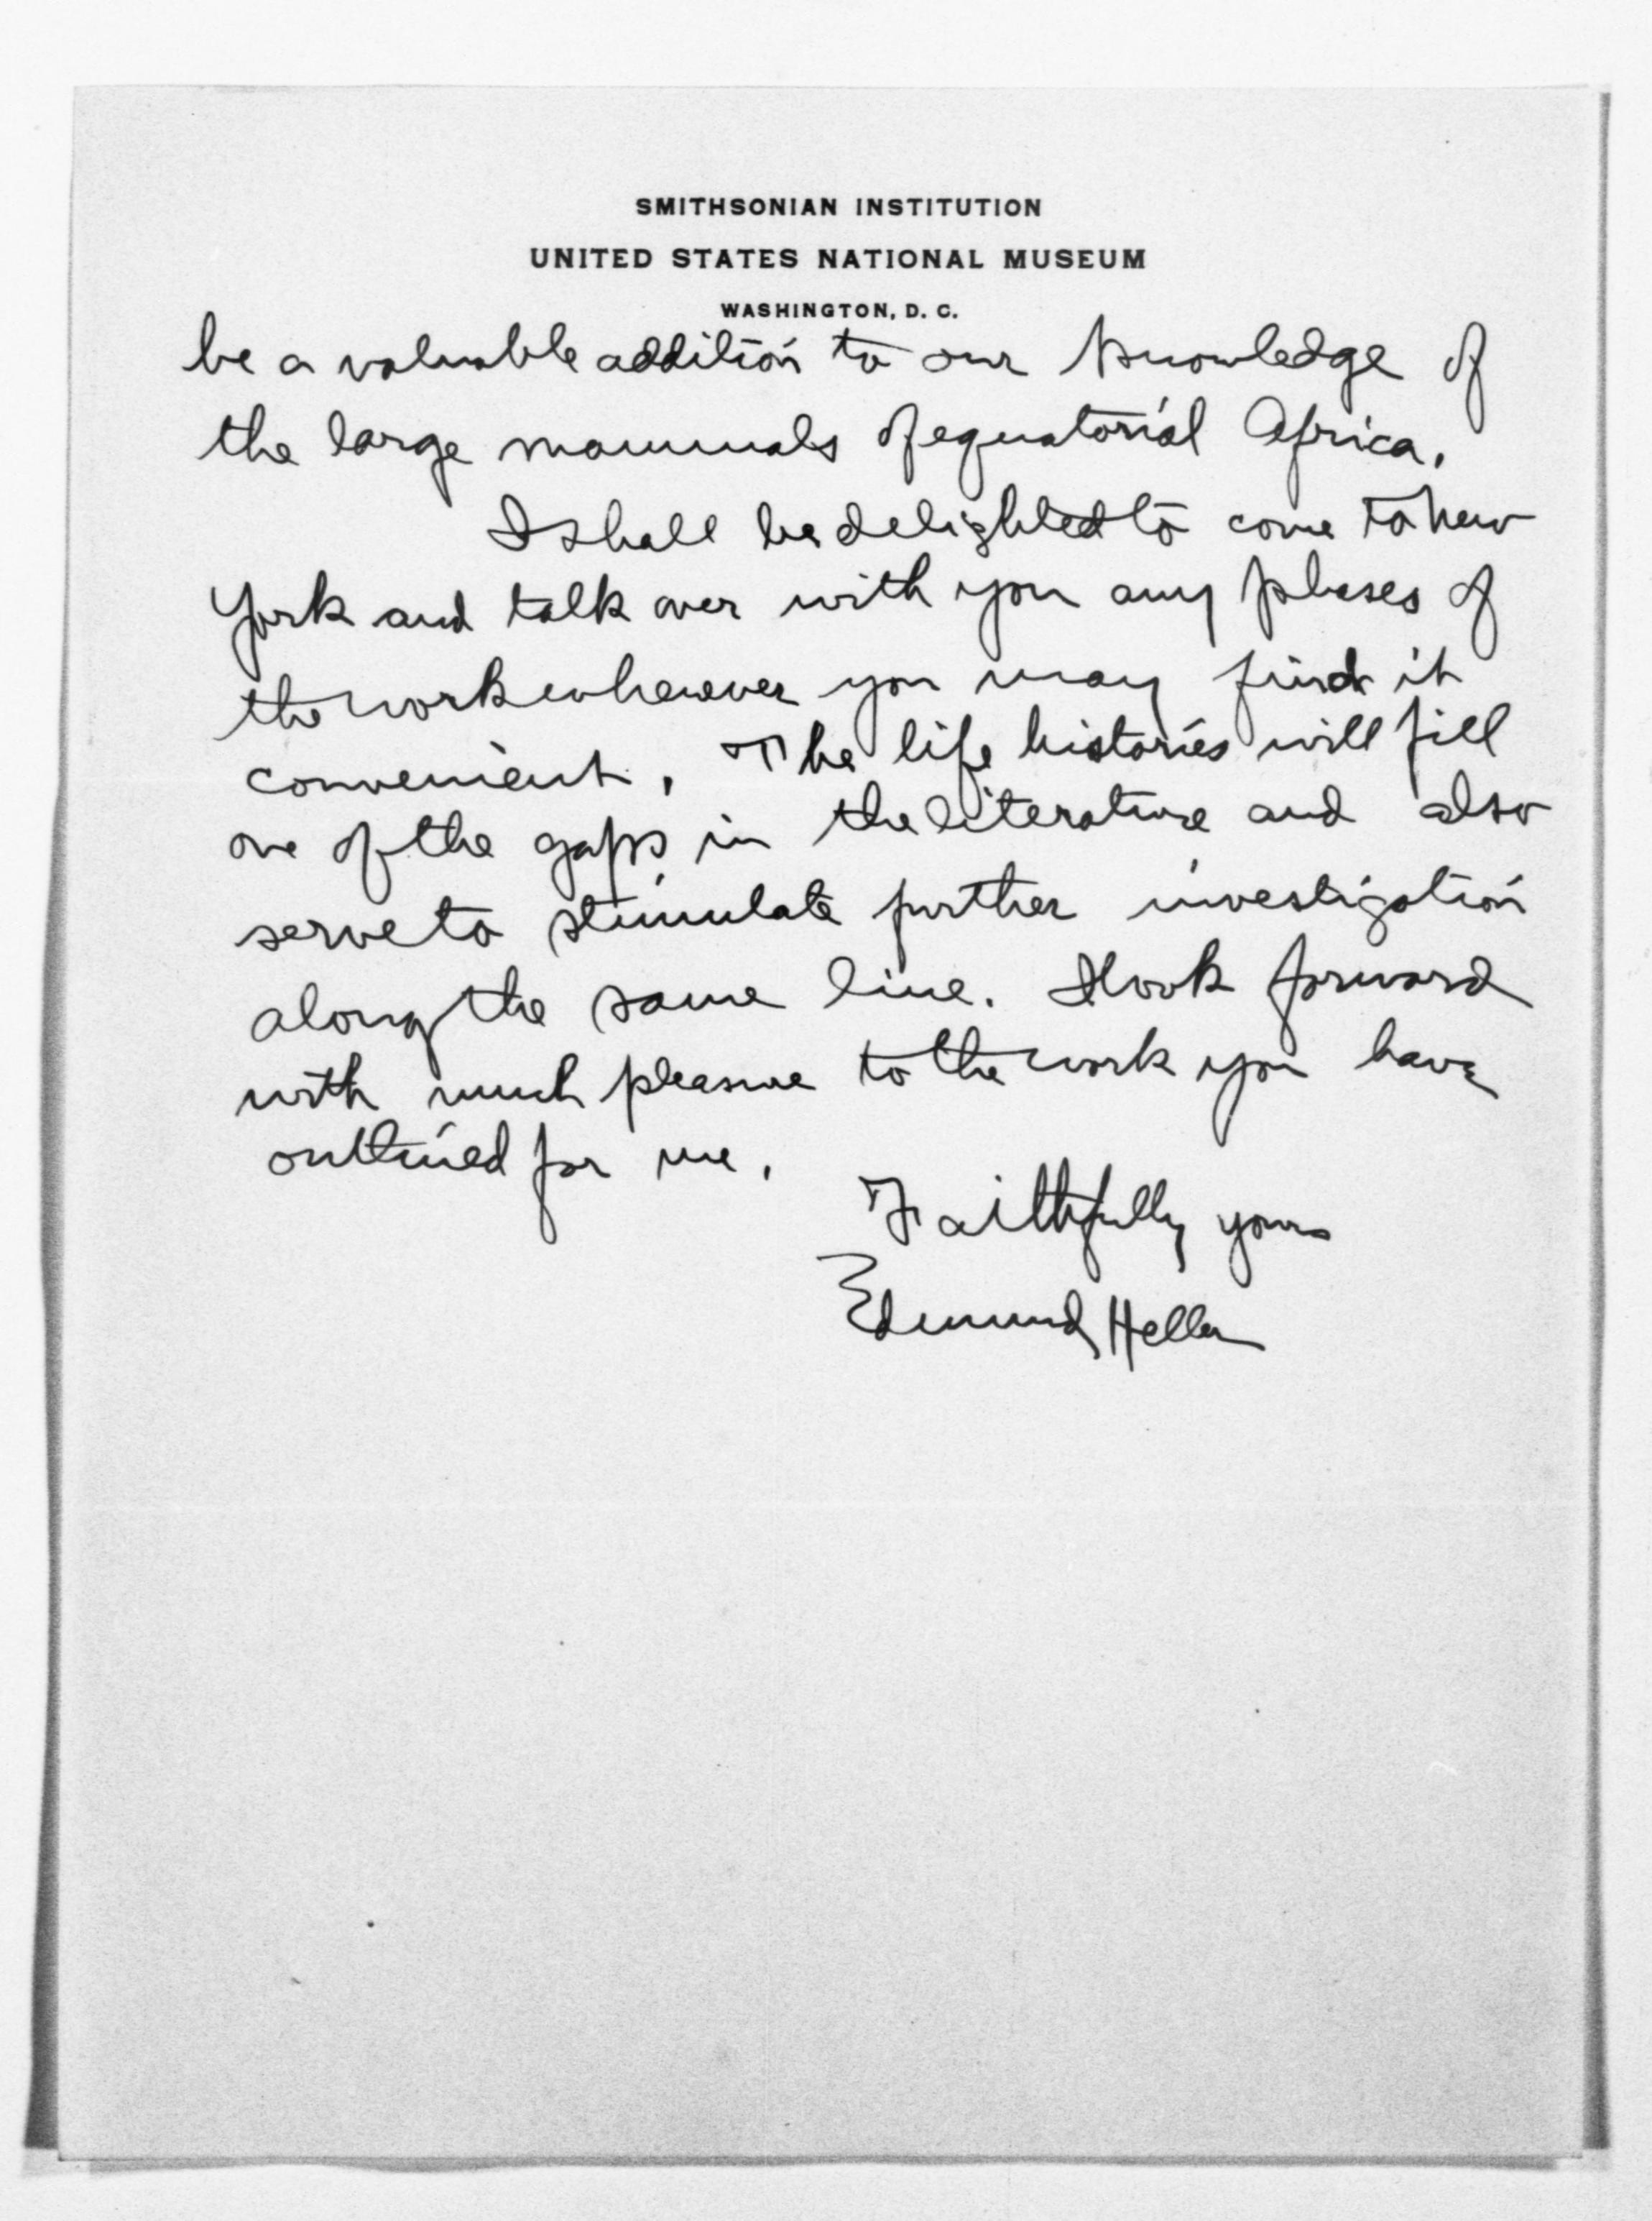 SMITHSONIAN INSTITUTION
UNITED STATES NATIONAL MUSEUM
WASHINGTON, D. C.
be a valuable addition to our knowledge of
the large mammals of equatorial Africa.
I shall be delighted to come to New
York and talk over with you any phases of
the work whenever you may find it
convenient. The life histories will fill
one of the gaps in the literature and also
serve to stimulate further investigation
along the same line. I look forward
with much pleasure to the work you have
outlined for me.
Faithfully yours
Edmund Heller